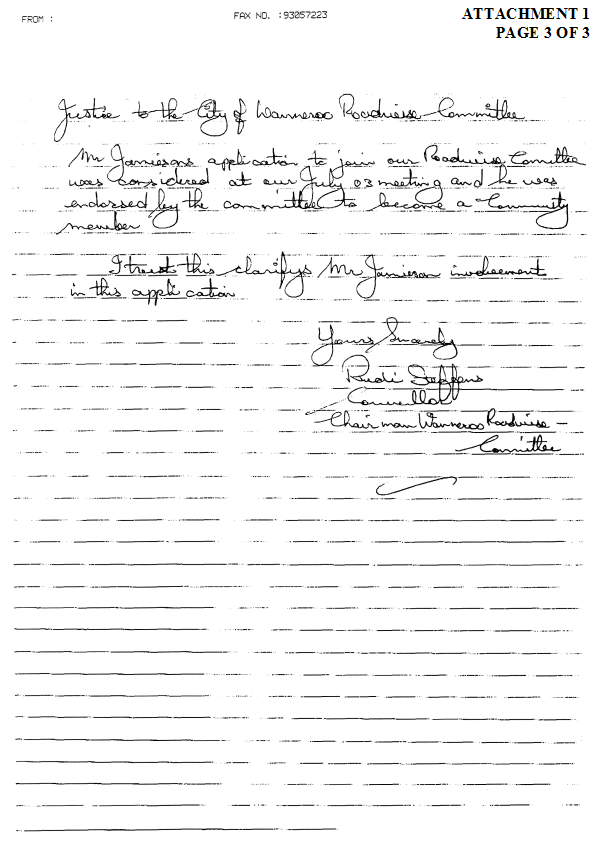 FROM :
FAX NO. :93057223
ATTACHMENT 1
PAGE 3 OF 3
Justice to the City of Wanneroo Roadwise Committee
Mr Jamiesons application to join our Roadwise Comittee
was considered at our July 03 meeting and he was
endorsed by the committee to become a Community
member
I trust this clarifys Mr Jamieson involvement
in this application
Yours Sincerely
Rudi Steffens
Councillor
Chairman Wanneroo Roadwise -
Committee